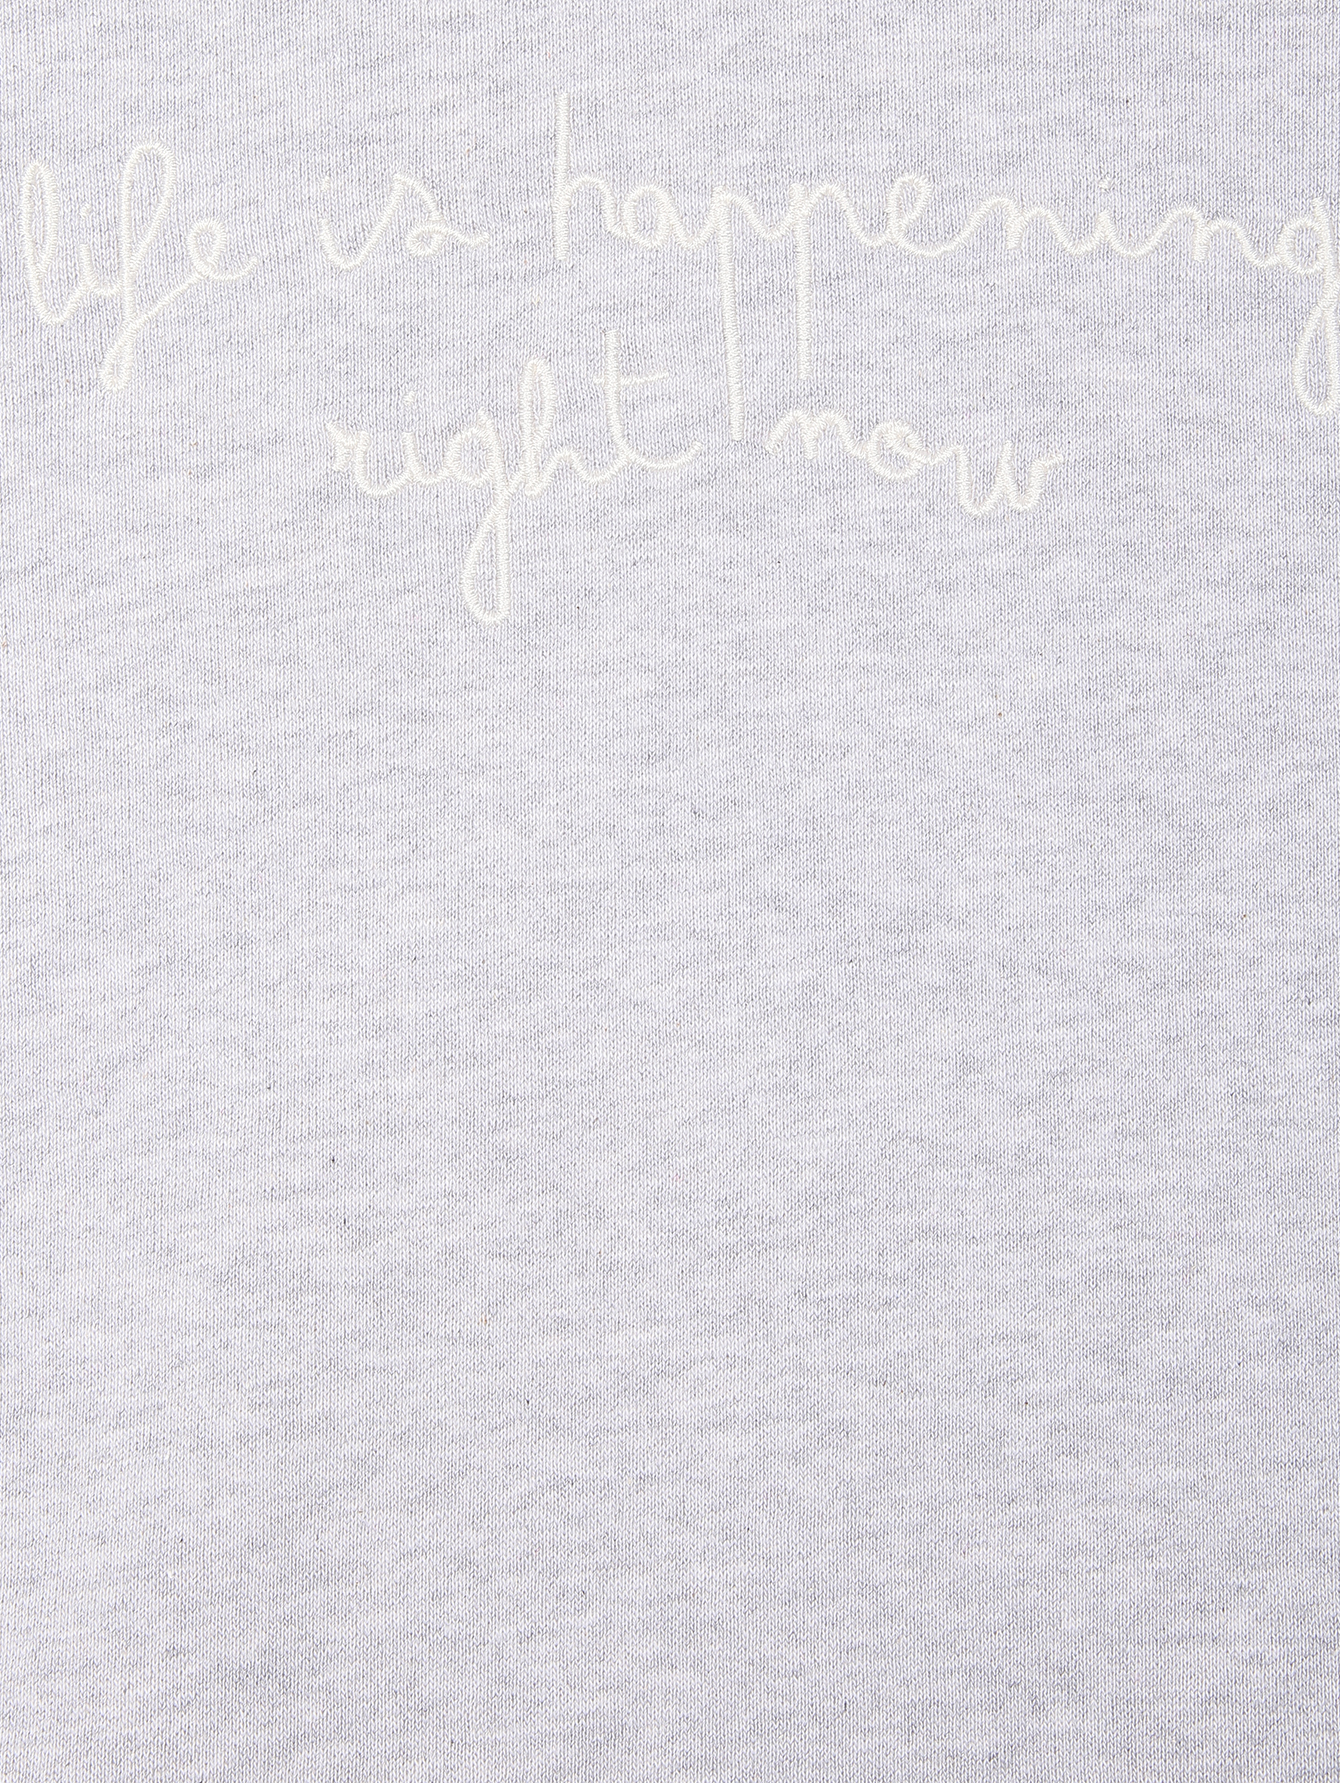 life is happening
right now